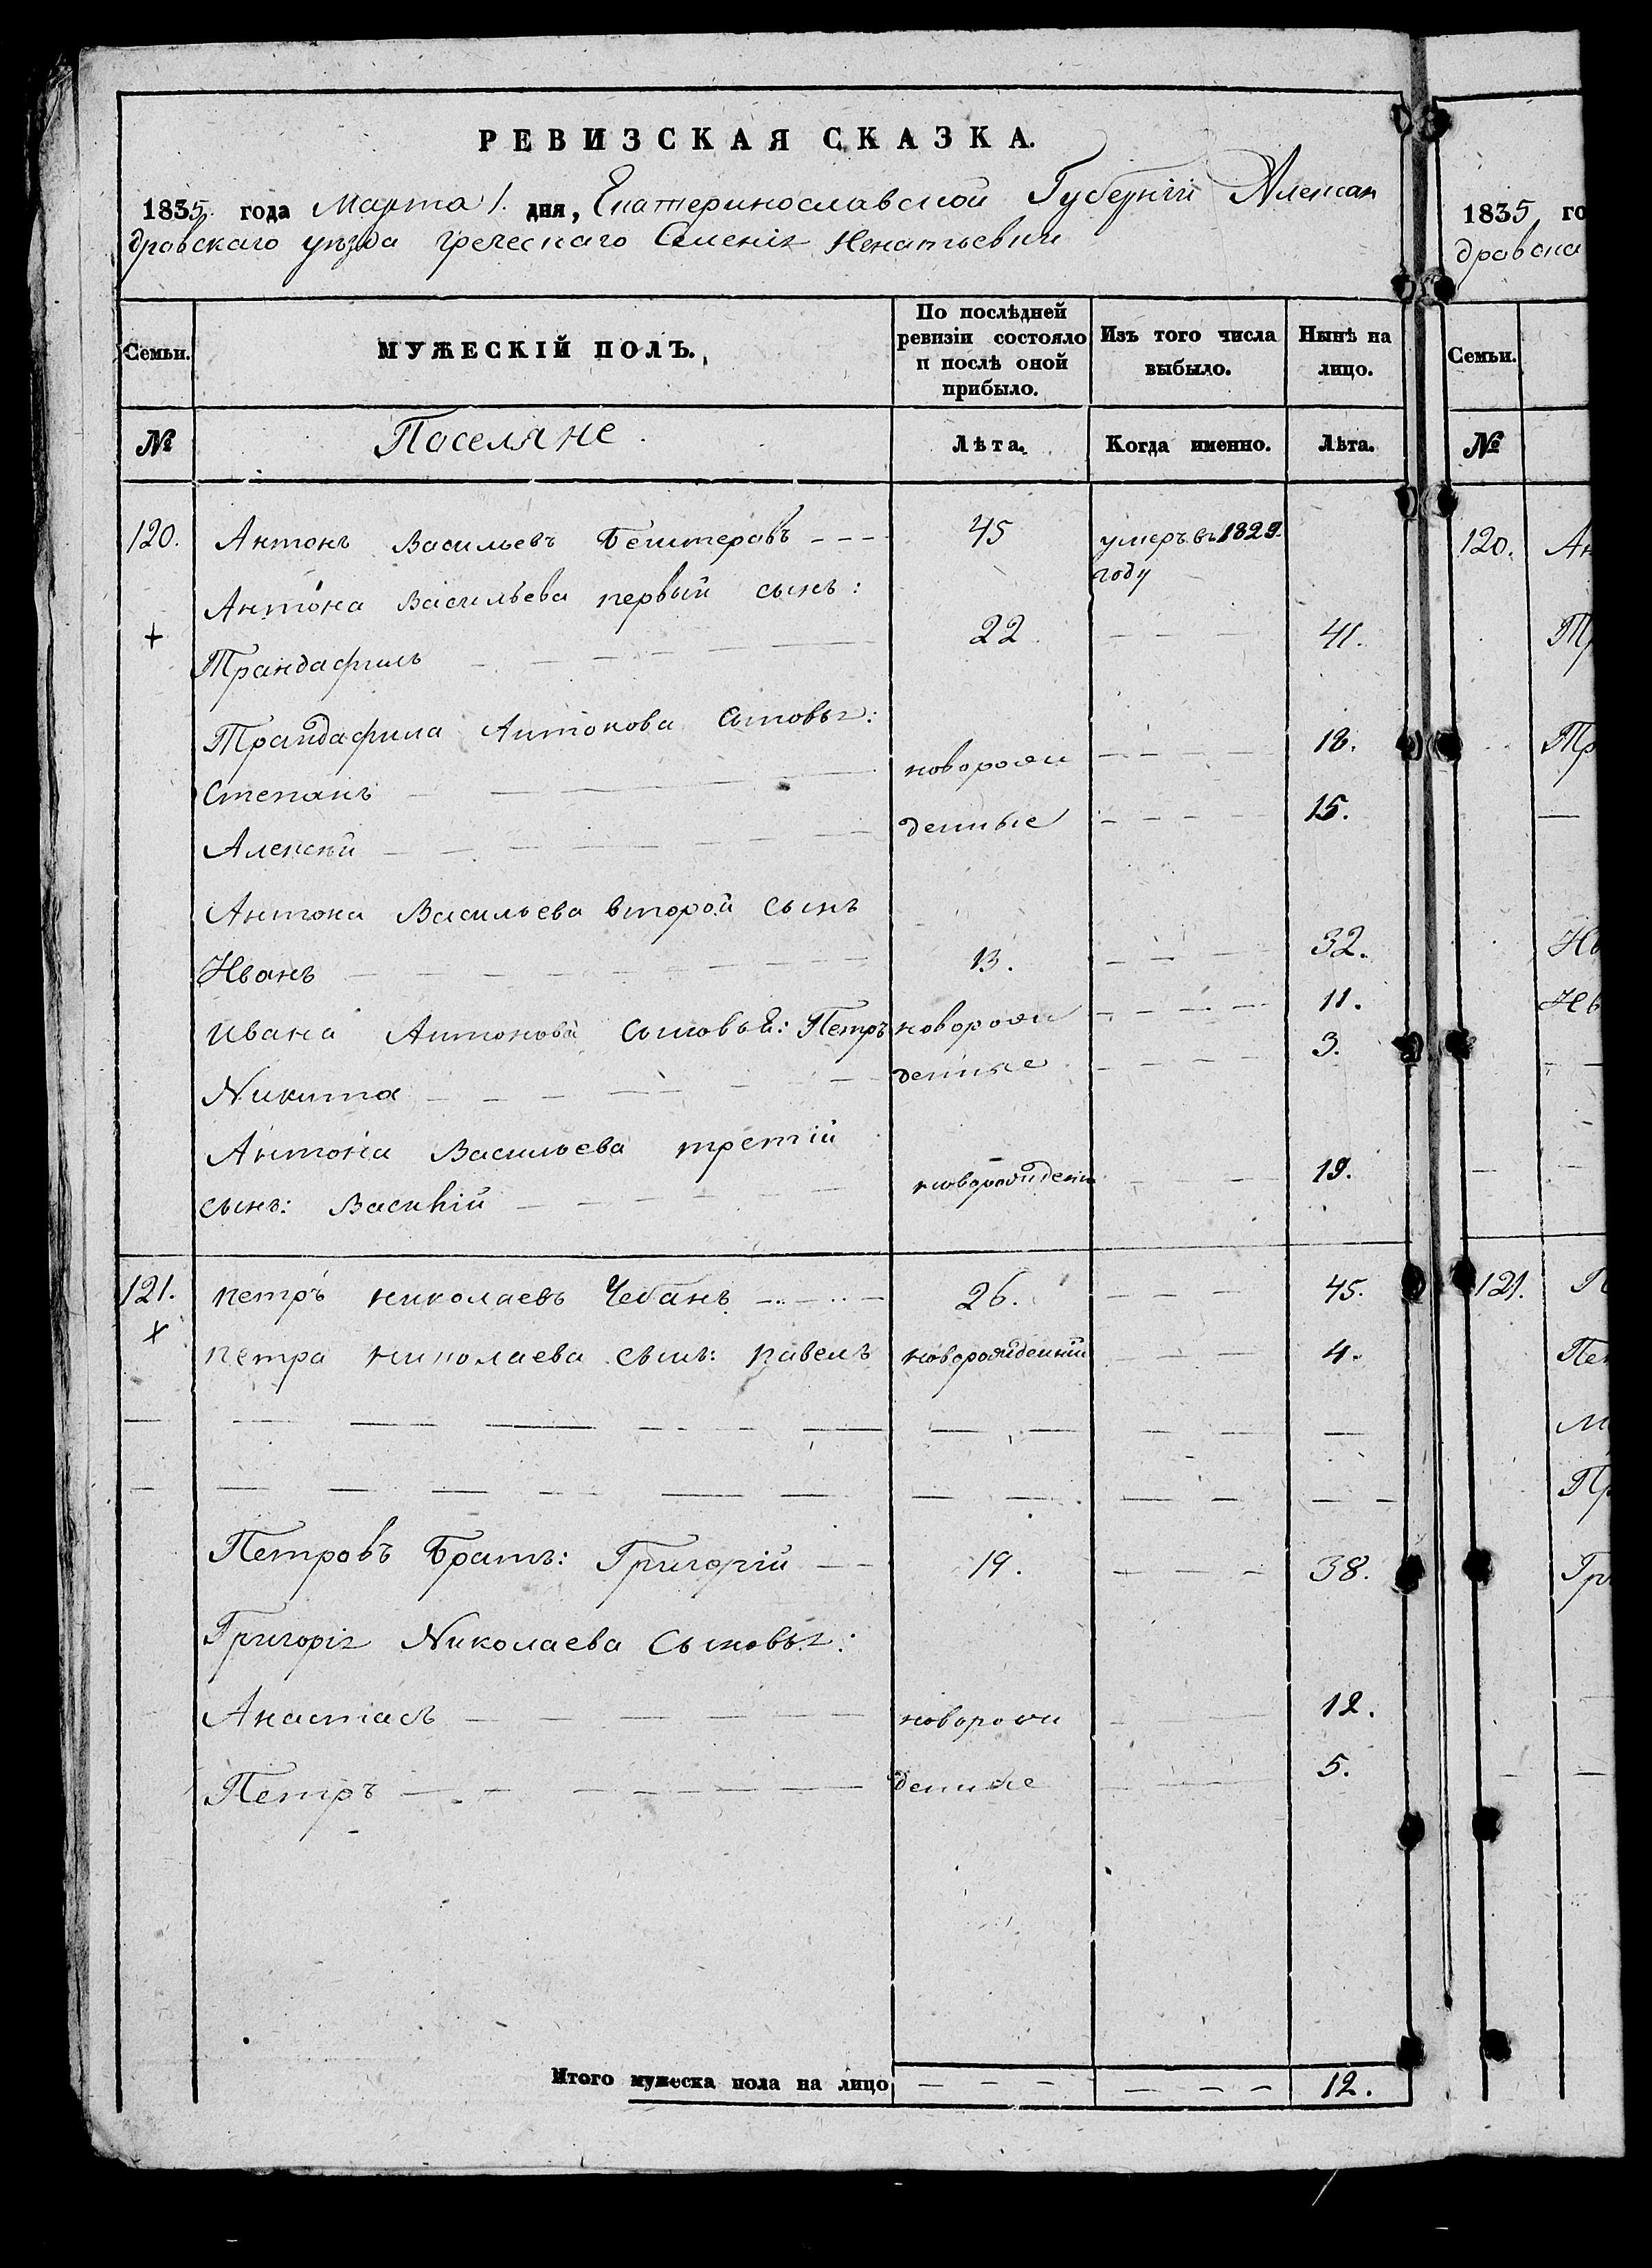 РЕВИЗСКАЯ СКАЗКА.
1835 года Марта 1. дня, Екатеринославской Губерніи Алексан
дровскаго уѣзда греческаго Селенія Игнатьевки
Семьи. МУЖЕСКІЙ ПОЛЪ. По послѣдней ревизіи состояло и послѣ оной прибыло. Изъ того числа выбыло. Нынѣ на лицо.
№ Поселяне. Лѣта. Когда именно. Лѣта.
120. Антонъ Васильевъ Бештеровъ --- 45 умеръ въ 1829.
году
Антона Васильева первый сынъ:
+ Трандафилъ 22 41.
Трандафила Антонова Сыновья:
Степанъ новорож 18.
Алексѣй денные 15.
Антона Васильева второй сынъ
Иванъ 13. 32.
Ивана Антонова Сыновья: Петръ новорож 11.
Никита денные 3.
Антона Васильева третій
сынъ: Василій новорожден 19.
121. Петръ Николаевъ Чебанъ 26. 45.
+ Петра Николаева сынъ: Павелъ новорожденный 4.
Петровъ Братъ: Григорій 19. 38.
Григорія Николаева Сыновья:
Анастасъ новорож 12.
Петръ денные 5.
Итого мужеска пола на лицо 12.
1835 го
дровска
Семьи.
№
120. Ан
Тр
Тр
Ив
Ив
121. П
Пет
М
Пр
Гри